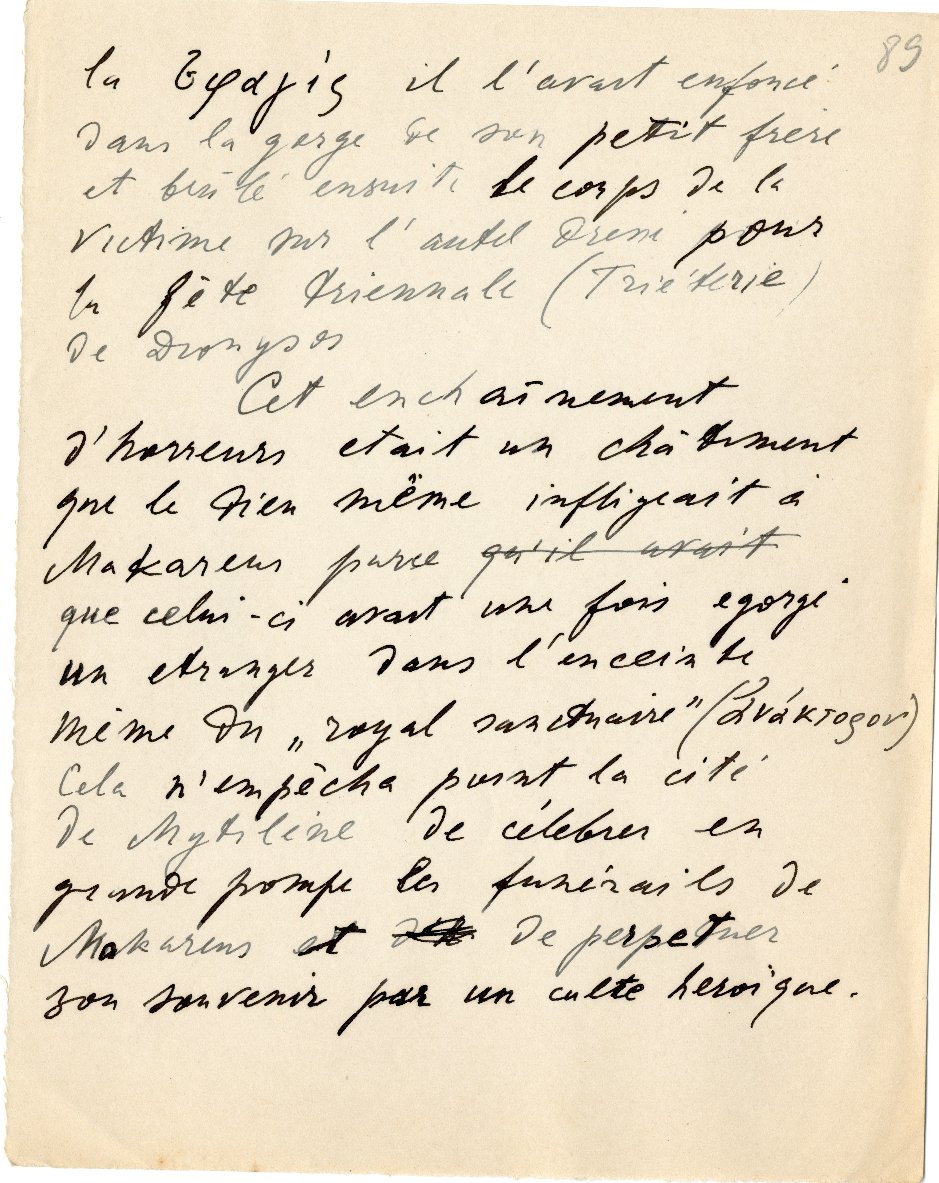 89
la σφαγίς il l'avait enfoncé
dans la gorge de son petit frère
et brûlé ensuite le corps de la
victime sur l'autel dressé pour
la fête triennale (Triéterie)
de Dionysos
Cet enchaînement
d'horreurs etait un châtiment
que le dieu même infligeait à
Makareus parce qu'il avait
que celui-ci avait une fois egorgé
un etranger dans l'enceinte
même du „royal sanctuaire" (ἀνάκτορον)
Cela n'empêcha point la cité
de Mytilène de célébrer en
grande pompe les funérails de
Makareus et de perpetuer
son souvenir par un culte heroïque.